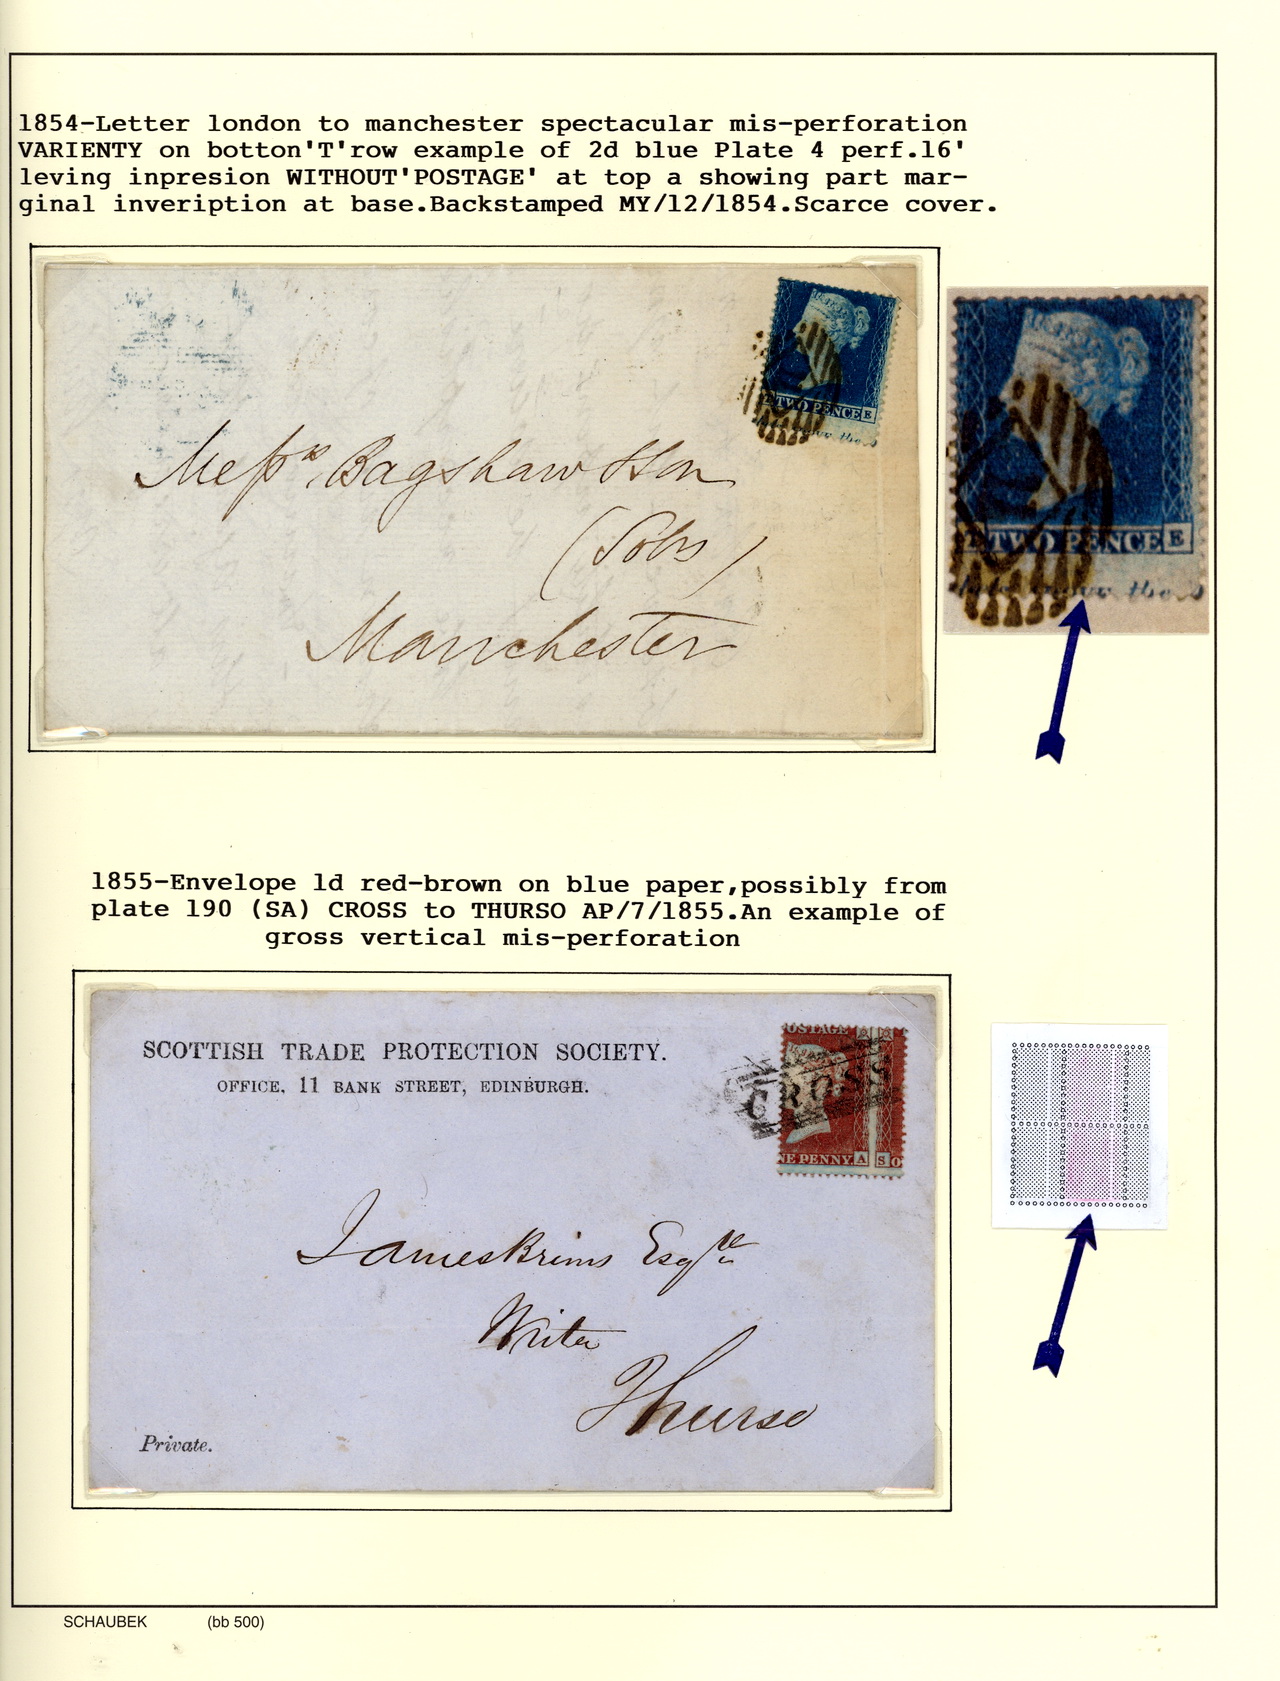 1854-Letter london to manchester spectacular mis-perforation
VARIENTY on botton'T'row example of 2d blue Plate 4 perf.16'
leving inpresion WITHOUT'POSTAGE' at top a showing part mar-
ginal inveription at base.Backstamped MY/12/1854.Scarce cover.
TWO PENCE E
the
Messrs Bagshaw & Son
(Solrs)
Manchester
TWO PENCE E
the
1855-Envelope 1d red-brown on blue paper,possibly from
plate 190 (SA) CROSS to THURSO AP/7/1855.An example of
gross vertical mis-perforation
SCOTTISH TRADE PROTECTION SOCIETY.
OFFICE, 11 BANK STREET, EDINBURGH.
OSTAGE
CROSS
NE PENNY A S O
James Brims Esqre
Writer
Thurso
Private.
SCHAUBEK (bb 500)